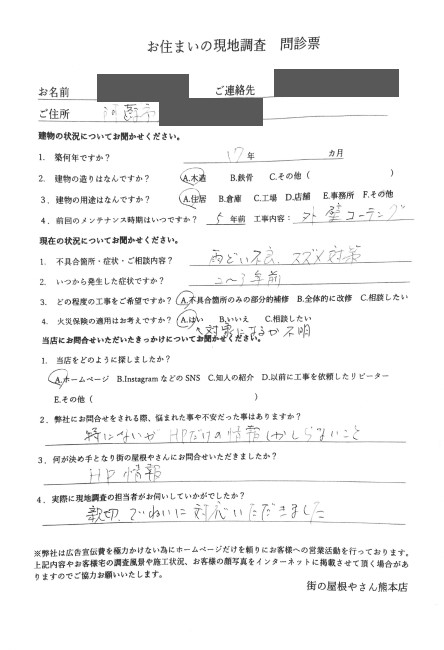 お住まいの現地調査　問診票
お名前　ご連絡先
ご住所　阿蘇市
建物の状況についてお聞かせください。
1.　築何年ですか？　17年　カ月
2.　建物の造りはなんですか？　A.木造　B.鉄骨　C.その他（　）
3．建物の用途はなんですか？　A.住居　B.倉庫　C.工場　D.店舗　E.事務所　F.その他
4．前回のメンテナンス時期はいつですか？　5年前　工事内容：外壁コーテング
現在の状況についてお聞かせください。
1.　不具合箇所・症状・ご相談内容？　雨どい不良、スズメ対策
2.　いつから発生した症状ですか？　2〜3年前
3.　どの程度の工事をご希望ですか？　A.不具合箇所のみの部分的補修　B.全体的に改修　C.相談したい
4.　火災保険の適用はお考えですか？　A.はい　B.いいえ　C.相談したい
対象になるか不明
当店にお問合せいただいたきっかけについてお聞かせください。
1.　当店をどのように探しましたか？
A.ホームページ　B.Instagram などの SNS　C.知人の紹介　D.以前に工事を依頼したリピーター
E.その他（　）
2．弊社にお問合せをされる際、悩まれた事や不安だった事はありますか？
特にないが HPだけの情報しかしらないこと
3．何が決め手となり街の屋根やさんにお問合せいただきましたか？
HP情報
4．実際に現地調査の担当者がお伺いしていかがでしたか？
親切、ていねいに対応いただきました
※弊社は広告宣伝費を極力かけない為にホームページだけを頼りにお客様への営業活動を行っております。
上記内容やお客様宅の調査風景や施工状況、お客様の顔写真をインターネットに掲載させて頂く場合があ
りますのでご協力お願いいたします。
街の屋根やさん熊本店